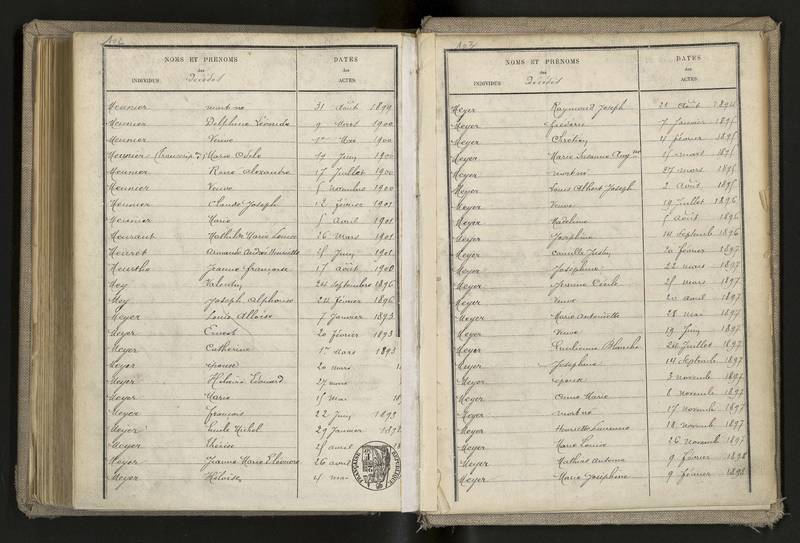 102
NOMS ET PRÉNOMS
des
INDIVIDUS Décédés
DATES
des
ACTES
Meunier mort né 31 Août 1899
Meunier Delphine Léonide 9 1900
Meunier Veuve 1er 1900
Meunier (Transcript on) Marie Odele 19 Juin 1900
Meunier René Alexandre 17 Juillet 1900
Meunier Veuve 5 novembre 1900
Meunier Claude Joseph 12 février 1901
Meunier Marie 5 Avril 1901
Meurant Mathilde Marie Louise 26 Mars 1901
Meuret Armande Andrée Henriette Juin 1901
Meurthe Jeanne françoise 17 Août 1900
Mey Valentin 24 Septembre 1896
Mey Joseph Alphonse 24 février 1896
Meyer Louis Alloïse 7 Janvier 1893
Meyer Ernest 20 février 1893
Meyer Catherine 1er Mars 1893
Meyer épouse 20 mars
Meyer Hilaire Edouard 27 mars
Meyer Marie 15 Mai
Meyer françois 22 Juin 1893
Meyer Emile Michel 29 Janvier
Meyer thérèse avril
Meyer Jeanne Marie Eléonore 26 avril
Meyer Héloïse mai
FRANÇAISE RÉPUBLIQUE
103
NOMS ET PRÉNOMS
des
INDIVIDUS Décédés
DATES
des
ACTES
Meyer Raymond Joseph 21 Août 1894
Meyer frédéric 7 Janvier 1895
Meyer Chrétien 4 février 1895
Meyer Marie Suzanne mars 1895
Meyer mort né 27 mars 1895
Meyer Louis Albert Joseph 2 Août 1895
Meyer Veuve 19 Juillet 1896
Meyer Madeleine 5 Août 1896
Meyer Joséphine 14 Septembre 1896
Meyer Camille Justin 20 février 1897
Meyer Joséphine 22 mars 1897
Meyer Jeanne Cécile mars 1897
Meyer Veuve 20 avril 1897
Meyer Marie Antoinette 28 mai 1897
Meyer Veuve 19 Juin 1897
Meyer Emilienne Blanche 24 Juillet 1897
Meyer Joséphine 14 Septembre 1897
Meyer épouse 3 novembre 1897
Meyer Marie 8 novembre 1897
Meyer mort né 17 novembre 1897
Meyer Henriette Laurence 18 novemb 1897
Meyer Marie Louise 26 Novembre 1897
Meyer Mathias Antoine 9 février 1898
Meyer Marie Joséphine 9 février 1898